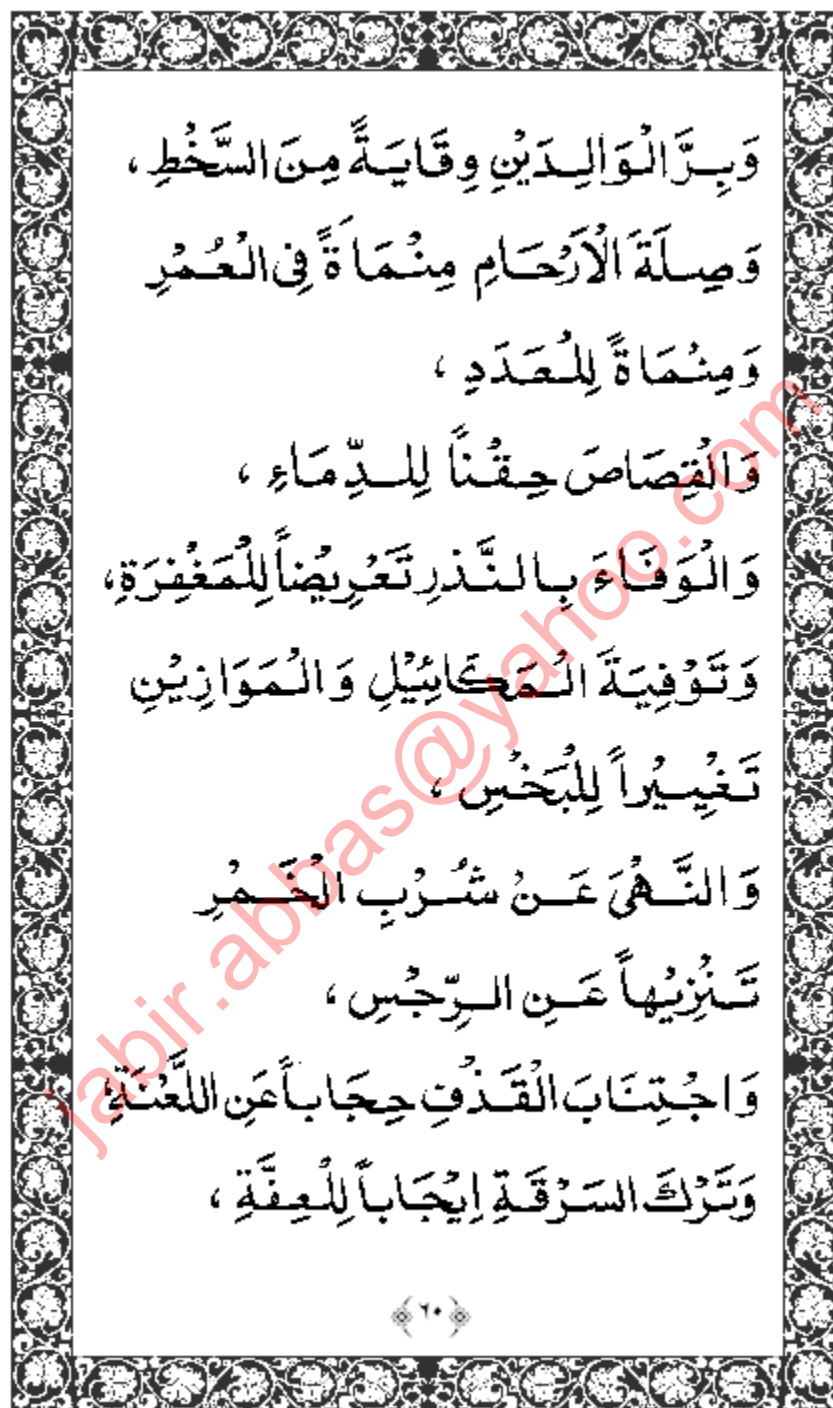 وَبِرَّ الْوَالِدَيْنِ وِقَايَةً مِنَ السَّخْطِ ،
وَصِلَةَ الْاَرْحَامِ مِنْمَاةً فِى الْعُمْرِ
وَمِنْمَاةً لِلْعَدَدِ ،
وَالْقِصَاصَ حِقْنًا لِلدِّمَاءِ ،
وَالْوَفَاءَ بِالنَّذرِ تَعْرِيْضاً لِلْمَغْفِرَةِ،
وَتَوْفِيَةَ الْمَكَائِيْلِ وَالْمَوَازِيْنِ
تَغْيِيْراً لِلْبَخْسِ ،
وَالنَّهْىَ عَنْ شُرْبِ الْخَمْرِ
تَنْزِيْهاً عَنِ الرِّجْسِ ،
وَاجْتِنَابَ الْقَذْفِ حِجَاباً عَنِ اللَّعْنَةِ
وَتَرْكَ السَرْقَةِ اِيْجَاباً لِلْعِفَّةِ ،
﴿٦٠﴾
jabir.abbas@yahoo.com